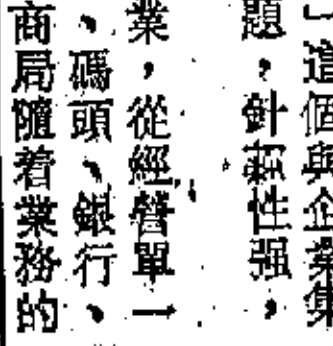 ﹂這個與企業集
題，針對性强，
業，從經營單一
、碼頭、銀行、
商局隨着業務的